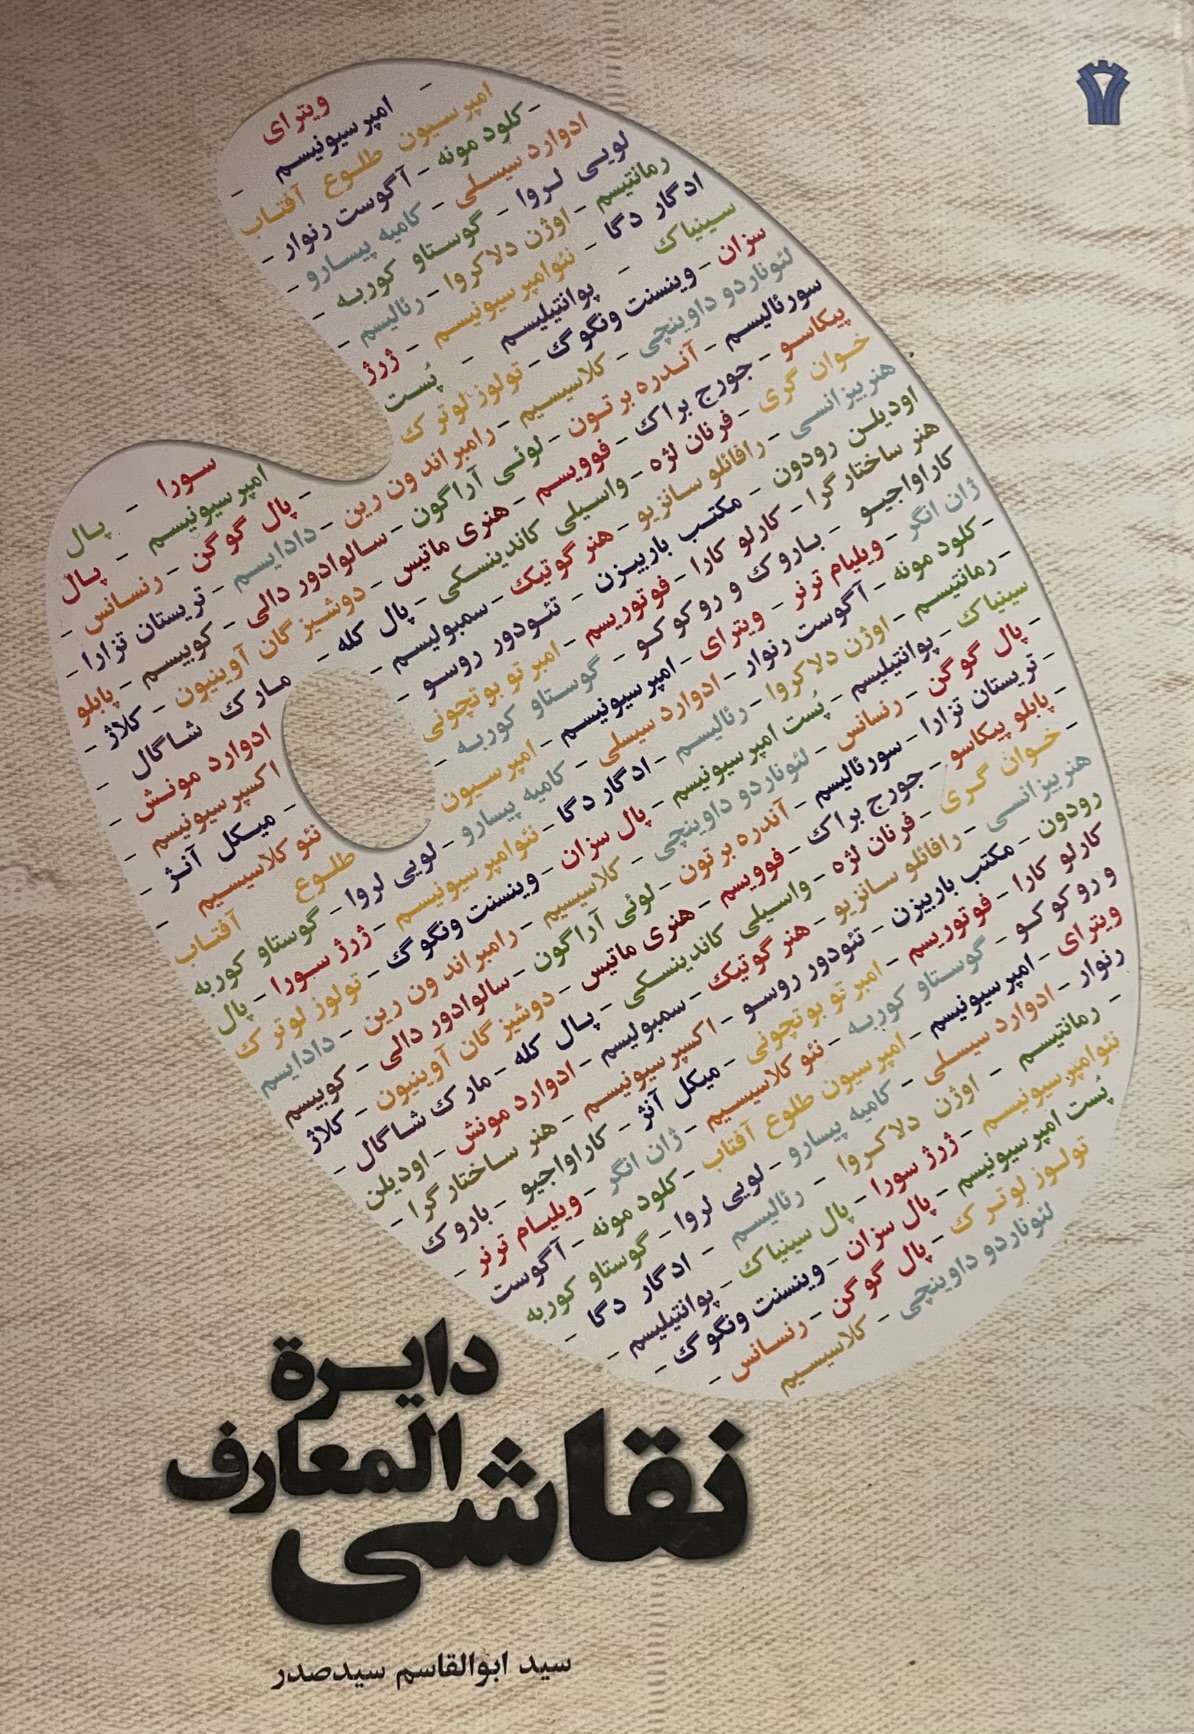 ویترای
- امپرسیونیسم -
امپرسیون طلوع آفتاب
- کلود مونه - آگوست رنوار -
ادوارد سیسلی - کامیه پیسارو -
لویی لروا - گوستاو کوربه -
رمانتیسم - اوژن دلاکروا - رئالیسم -
ادگار دگا - نئوامپرسیونیسم - ژرژ
سورا - پال
سینیاک - پوانتیلیسم - پُست
امپرسیونیسم - پال
سزان - وینسنت ونگوگ - تولوز لوترک
- پال گوگن - رنسانس -
لئوناردو داوینچی - کلاسیسیم - رامبراند ون رین - دادایسم - تریستان تزارا -
سورئالیسم - آندره برتون - لوئی آراگون - سالوادور دالی - کوبیسم - پابلو
پیکاسو - جورج براک - فوویسم - هنری ماتیس - دوشیزگان آوینیون - کلاژ -
خوان گری - فرنان لژه - واسیلی کاندینسکی - پال کله - مارک شاگال -
هنربیزانسی - رافائلو سانزیو - هنر گوتیک - سمبولیسم - ادوارد مونش -
اودیلن رودون - مکتب باربیزن - تئودور روسو - اکسپرسیونیسم -
هنر ساختارگرا - کارلو کارا - فوتوریسم - امبرتو بوتچونی - میکل آنژ -
کاراواجیو - باروک و روکوکو - گوستاو کوربه - نئوکلاسیسیم -
ژان انگر - ویلیام ترنر - ویترای - امپرسیونیسم - امپرسیون طلوع آفتاب
- کلود مونه - آگوست رنوار - ادوارد سیسلی - کامیه پیسارو - لویی لروا - گوستاو کوربه
- رمانتیسم - اوژن دلاکروا - رئالیسم - ادگار دگا - نئوامپرسیونیسم - ژرژ سورا - پال
سینیاک - پوانتیلیسم - پُست امپرسیونیسم - پال سزان - وینسنت ونگوگ - تولوز لوترک
- پال گوگن - رنسانس - لئوناردو داوینچی - کلاسیسیم - رامبراند ون رین - دادایسم
- تریستان تزارا - سورئالیسم - آندره برتون - لوئی آراگون - سالوادور دالی - کوبیسم
- پابلو پیکاسو - جورج براک - فوویسم - هنری ماتیس - دوشیزگان آوینیون - کلاژ
- خوان گری - فرنان لژه - واسیلی کاندینسکی - پال کله - مارک شاگال -
هنربیزانسی - رافائلو سانزیو - هنر گوتیک - سمبولیسم - ادوارد مونش - اودیلن
رودون - مکتب باربیزن - تئودور روسو - اکسپرسیونیسم - هنر ساختارگرا -
کارلو کارا - فوتوریسم - امبرتو بوتچونی - میکل آنژ - کاراواجیو - باروک
و روکوکو - گوستاو کوربه - نئو کلاسیسیم - ژان انگر - ویلیام ترنر -
ویترای - امپرسیونیسم - امپرسیون طلوع آفتاب - کلود مونه - آگوست
رنوار - ادوارد سیسلی - کامیه پیسارو - لویی لروا - گوستاو کوربه
- رمانتیسم - اوژن دلاکروا - رئالیسم - ادگار دگا -
نئوامپرسیونیسم - ژرژ سورا - پال سینیاک - پوانتیلیسم -
پُست امپرسیونیسم - پال سزان - وینسنت ونگوگ -
تولوز لوترک - پال گوگن - رنسانس -
لئوناردو داوینچی - کلاسیسیم
دایرة
المعارف
نقاشی
سید ابوالقاسم سیدصدر